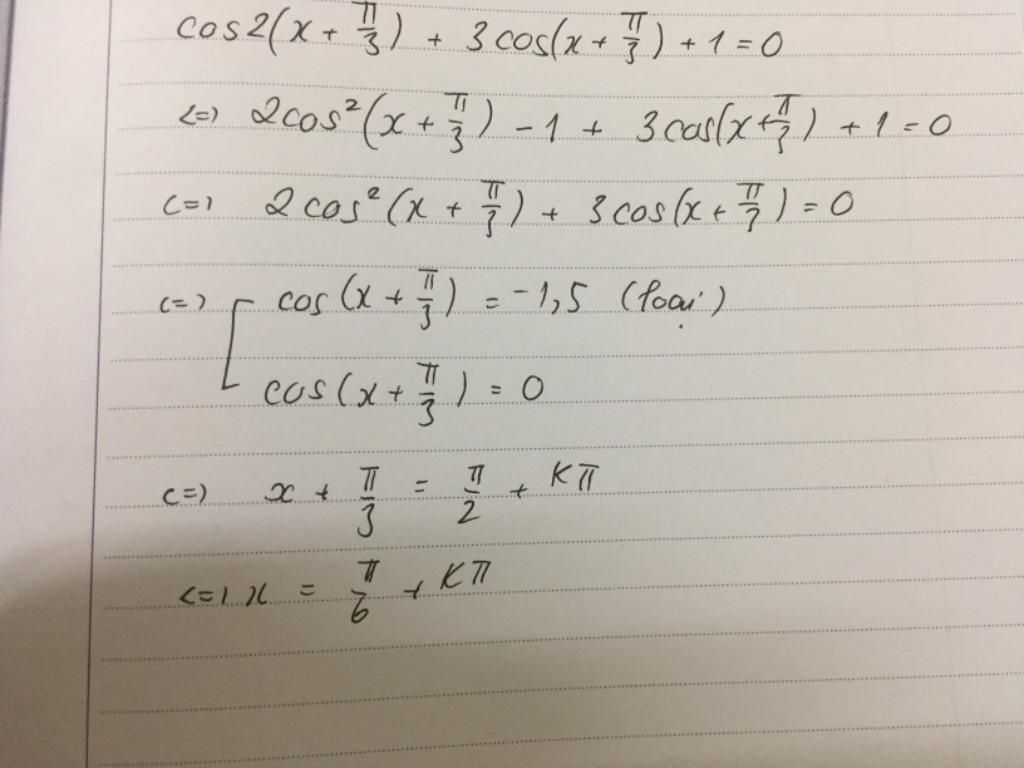 cos2(x + π/3) + 3cos(x + π/3) + 1 = 0
<=> 2cos²(x + π/3) - 1 + 3cos(x + π/3) + 1 = 0
<=> 2cos²(x + π/3) + 3cos(x + π/3) = 0
<=> [ cos(x + π/3) = -1,5 (loại)
cos(x + π/3) = 0
<=> x + π/3 = π/2 + Kπ
<=> x = π/6 + Kπ